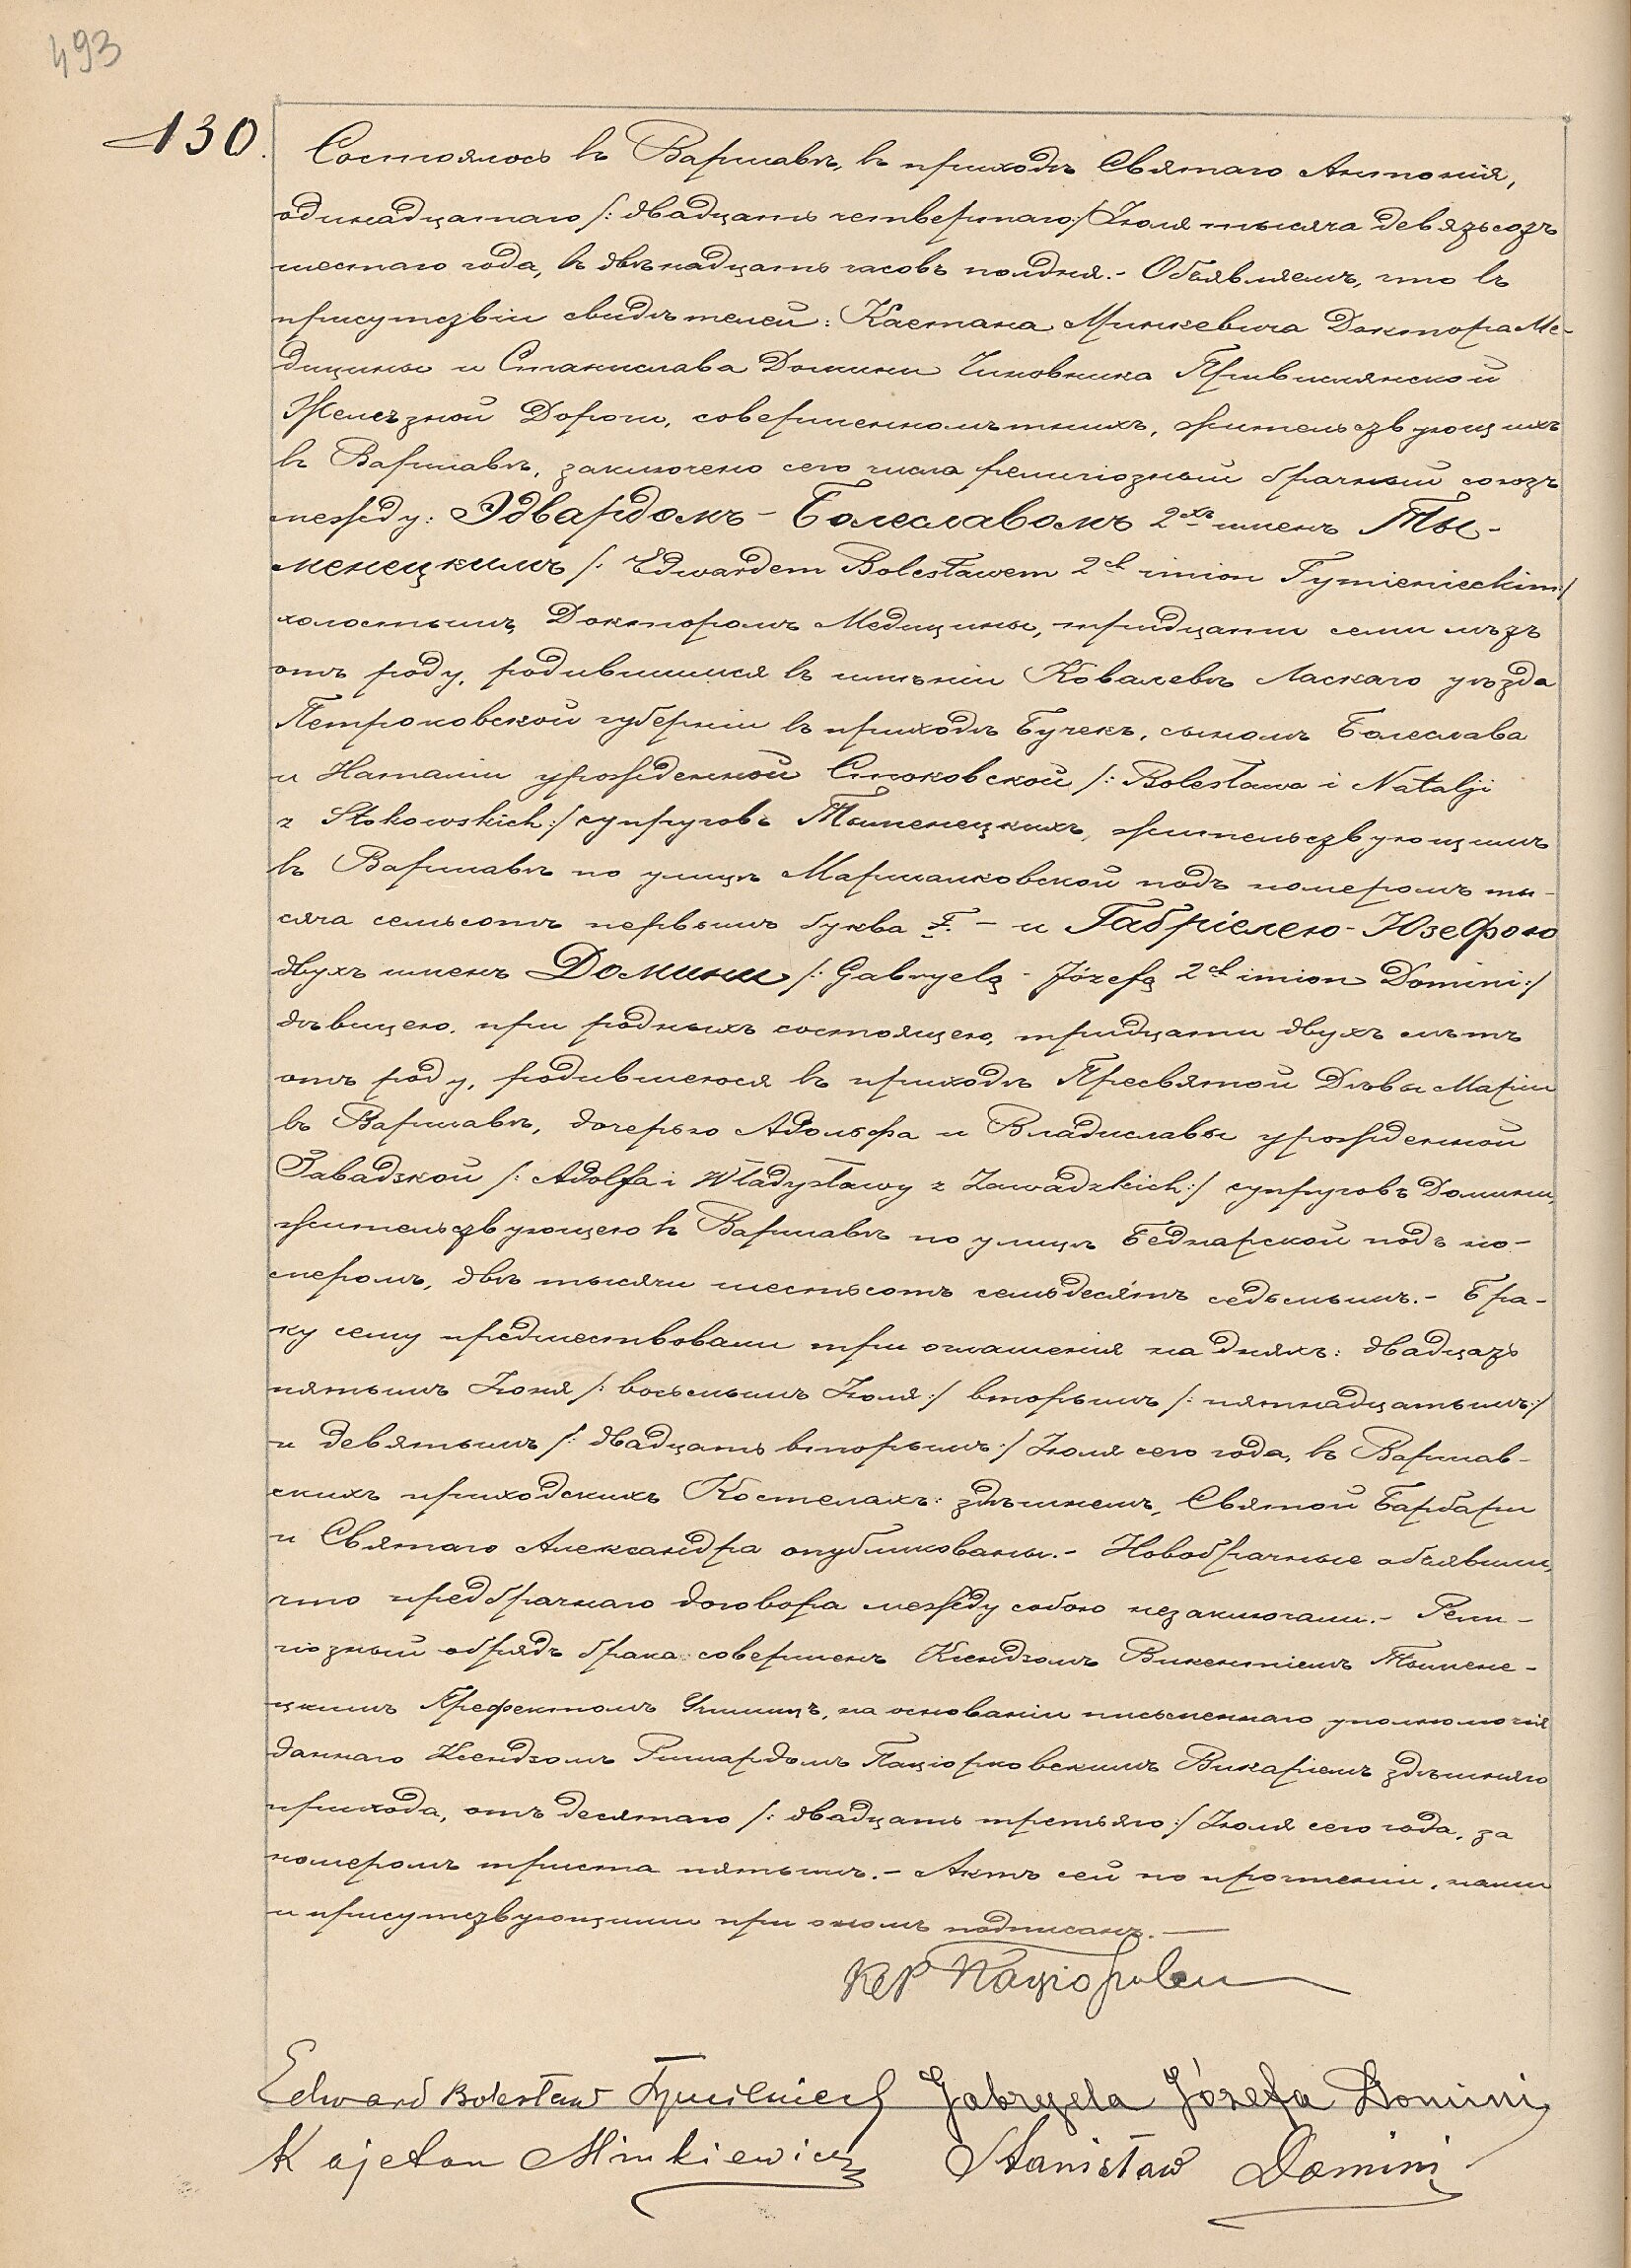 493
130.
Состоялось въ Варшавѣ, въ приходѣ Святаго Антонія,
одинадцатаго /: двадцать четвертаго :/ Іюля тысяча девятьсотъ
шестаго года, въ двѣнадцать часовъ полдня.- Объявляемъ, что въ
присутствіи свидѣтелей: Каетана Минкевича Доктора Ме-
дицины и Станислава Домини Чиновника Привислянской
Желѣзной Дороги, совершеннолѣтнихъ, жительствующихъ
въ Варшавѣ, заключено сего числа религіозный брачный союзъ
между: Эдвардомъ-Болеславомъ 2хъ именъ Ты-
менецкимъ /: Edwardem Bolesławem 2ch imion Tymienieckim :/
холостымъ, Докторомъ Медицины, тридцати семи лѣтъ
отъ роду, родившимся въ имѣніи Ковалевѣ Ласкаго уѣзда
Петроковской губерніи въ приходѣ Бучекъ, сыномъ Болеслава
и Наталіи урожденной Стоковской /: Bolesława i Natalji
z Stokowskich :/ супруговъ Тыменецкихъ, жительствующимъ
въ Варшавѣ по улицѣ Маршалковской подъ номеромъ ты-
сяча семьсотъ первымъ буква F. - и Габріелею-Юзефою
двухъ именъ Домини /: Gabryelą - Józefą 2ch imion Domini :/
дѣвицею, при родныхъ состоящею, тридцати двухъ лѣтъ
отъ роду, родившеюся въ приходѣ Пресвятой Дѣвы Маріи
въ Варшавѣ, дочерью Адольфа и Владиславы урожденной
Завадзкой /: Adolfa i Władysławy z Zawadzkich :/ супруговъ Домини,
жительствующею въ Варшавѣ по улицѣ Беднарской подъ но-
меромъ, двѣ тысячи шестьсотъ семьдесятъ седьмымъ.- Бра-
ку сему предшествовали три оглашенія на дняхъ: двадцать
пятымъ Іюня /: восьмымъ Іюля :/ вторымъ /: пятнадцатымъ :/
и девятымъ /: двадцать вторымъ :/ Іюля сего года, въ Варшав-
скихъ приходскихъ Костелахъ: здѣшнемъ, Святой Барбары
и Святаго Александра опубликованы.- Новобрачные объявили,
что предбрачнаго договора между собою незаключали.- Рели-
гіозный обрядъ брака совершенъ Ксендзомъ Викентіемъ Тымене-
цкимъ Префектомъ Училищъ, на основаніи письменнаго уполномочія
даннаго Ксендзомъ Ришардомъ Паціорковскимъ Викаріемъ здѣшняго
прихода, отъ десятаго /: двадцать третьяго :/ Іюля сего года, за
номеромъ триста пятымъ.- Актъ сей по прочтеніи, нами
и присутствующими при ономъ подписанъ.—
Edward Bolesław Tymieniecki Gabryela Józefa Domini
Kajetan Minkiewicz Stanisław Domini